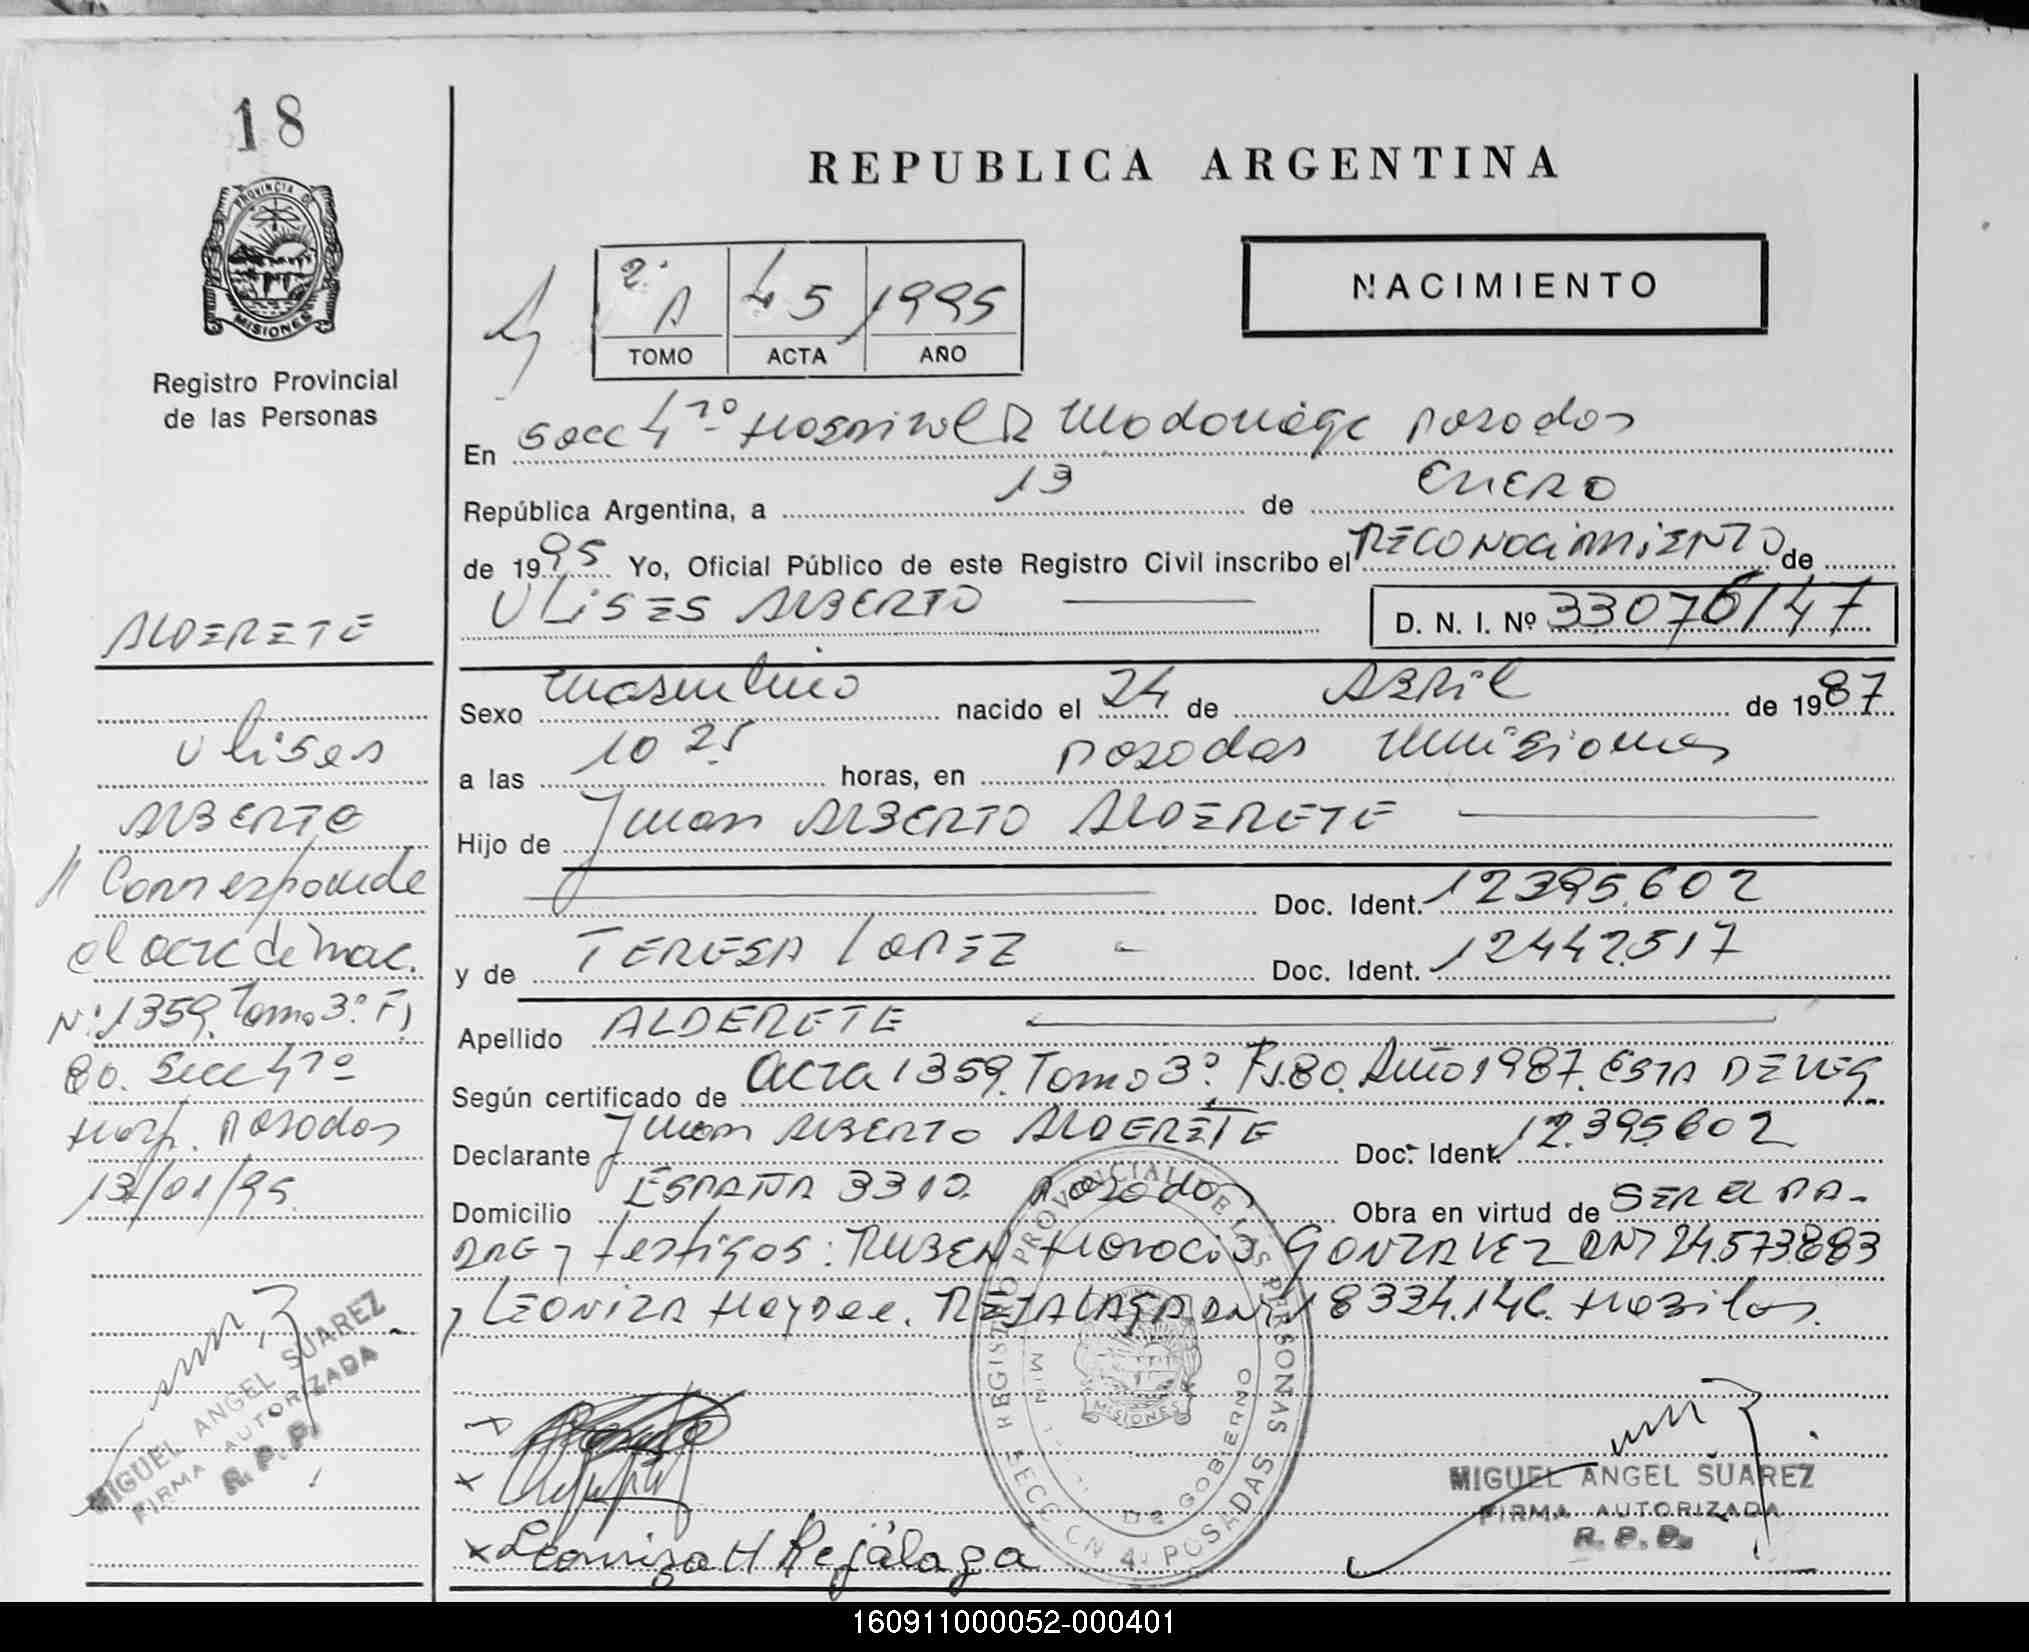 18
PROVINCIA DE
MISIONES
Registro Provincial
de las Personas
REPUBLICA ARGENTINA
NACIMIENTO
2º A 45 1995
TOMO ACTA AÑO
En Secc 4ta Hospital R Madariaga Posadas
República Argentina, a 13 de Enero
de 1995 Yo, Oficial Público de este Registro Civil inscribo el Reconocimiento de
ULISES ALBERTO D. N. I. Nº 33076147
Sexo masculino nacido el 24 de Abril de 1987
a las 10 25 horas, en Posadas Misiones
Hijo de Juan ALBERTO ALDERETE
Doc. Ident. 12395.602
y de TERESA LOPEZ - Doc. Ident. 12442.517
Apellido ALDERETE
Según certificado de Acta 1359. Tomo 3º. Fj.80. Año 1987. ESTA
Declarante Juan ALBERTO ALDERETE Doc. Ident. 12.395.602
Domicilio ESPAÑA 3310 Posadas Obra en virtud de SER EL PA-
DRE y testigos: RUBEN Horacio GONZALEZ DNI 24.573.883
y LEONIZA Haydee. REJALAGA DNI 18334.146. Habiles.
ALDERETE
Ulises
ALBERTO
// Corresponde
al acta de nac.
Nº: 1359. Tomo 3º. Fj
80. Secc 4ta
Hosp. Posadas
13/01/95
MIGUEL ANGEL SUAREZ
FIRMA AUTORIZADA
R. P. P.
REGISTRO PROVINCIAL DE LAS PERSONAS
DE GOBIERNO
MISIONES
SECCION 4ª POSADAS
x
x
x Leoniza H Rejálaga
MIGUEL ANGEL SUAREZ
FIRMA AUTORIZADA
R. P. P.
160911000052-000401